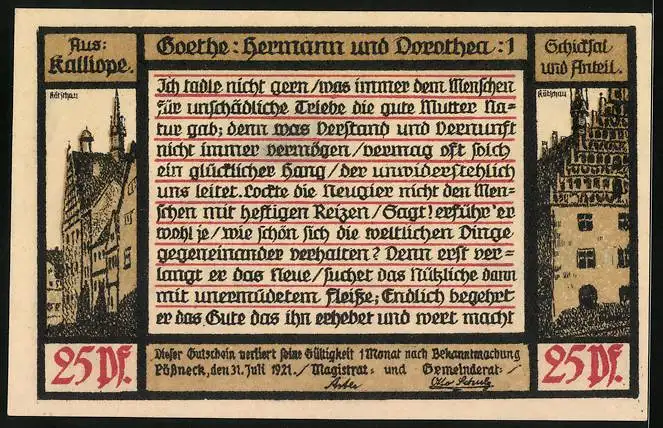 Aus:
Kalliope.
Goethe: Hermann und Dorothea: 1
Schicksal
und Anteil.
Kötschau
Kötschau
Ich tadle nicht gern/was immer dem Menschen
für unschädliche Triebe die gute Mutter Na=
tur gab; denn was Verstand und Vernunft
nicht immer vermögen/vermag oft solch
ein glücklicher Hang/der unwiderstehlich
uns leitet. Lockte die Neugier nicht den Men=
schen mit heftigen Reizen/Sagt! erführ' er
wohl je/wie schön sich die weltlichen Dinge
gegeneinander verhalten? Denn erst ver=
langt er das Neue/suchet das Nützliche dann
mit unermüdetem Fleiße; Endlich begehrt
er das Gute das ihn erhebet und wert macht
25 Pf.
Dieser Gutschein verliert seine Gültigkeit 1 Monat nach Bekanntmachung
Pößneck, den 31. Juli 1921./Magistrat: und Gemeinderat:/
Otto Schulz
25 Pf.